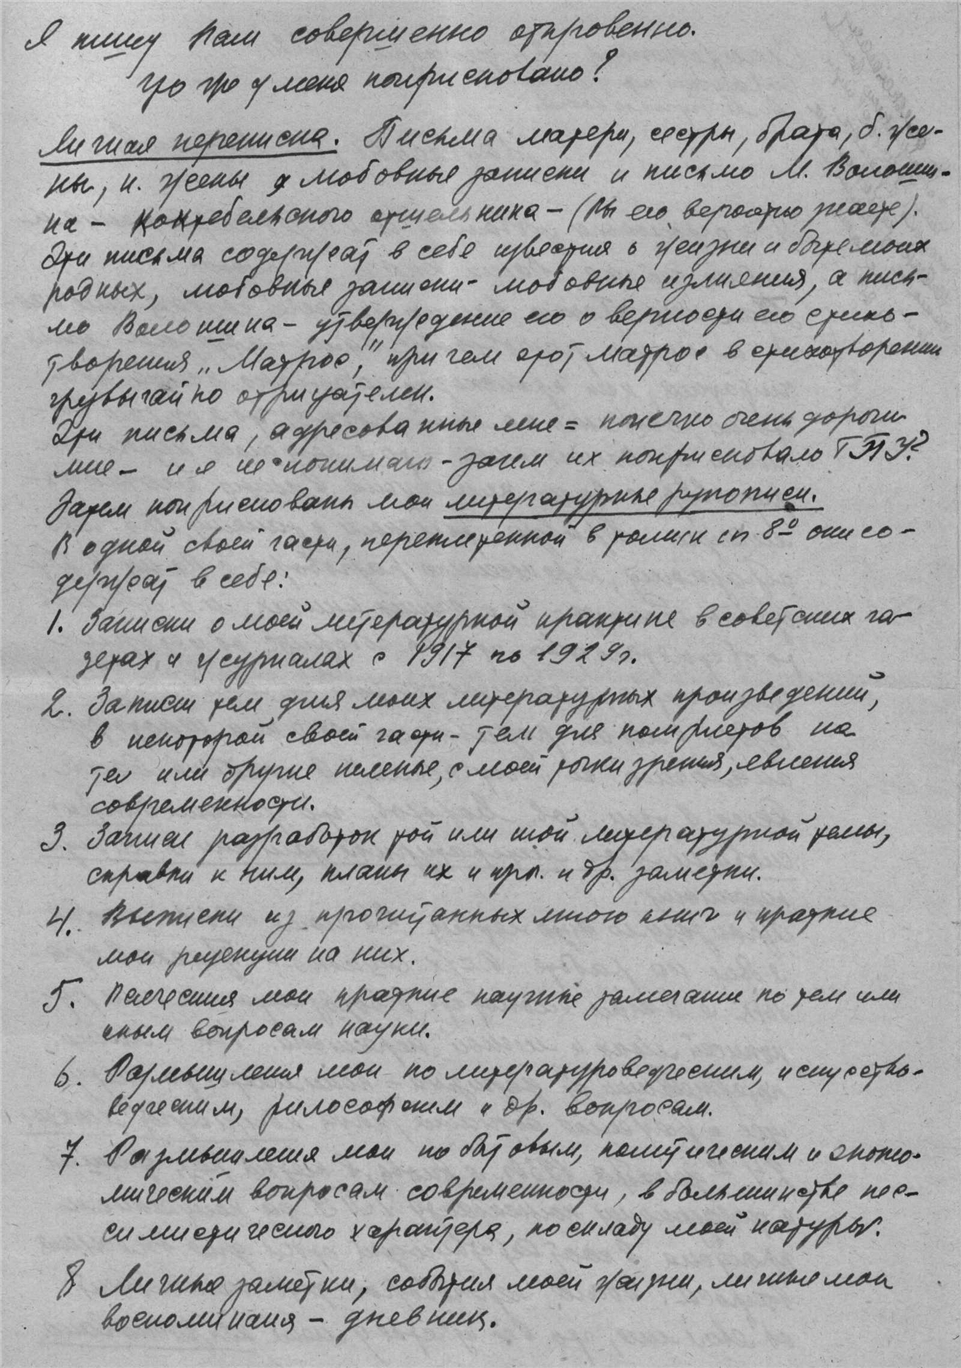 Я пишу Вам совершенно откровенно.
Что же у меня конфисковано?
Личная переписка. Письма матери, сестры, брата, б. же-
ны, н. жены и любовные записки и письмо М. Волоши-
на – коктебельского отшельника – (Вы его вероятно знаете).
Эти письма содержат в себе известия о жизни и быте моих
родных, любовные записки – любовные излияния, а пись-
мо Волошина – утверждение его о верности его стихо-
творения „Матрос“, при чем этот матрос в стихотворении
чрезвычайно отрицателен.
Эти письма, адресованные мне = конечно очень дороги
мне – и я не понимаю – зачем их конфисковало ГПУ?
Затем конфискованы мои литературные рукописи.
В одной своей части, переплетенной в томики in 8º они со-
держат в себе:
1. Записки о моей литературной практике в советских га-
зетах и журналах с 1917 по 1929 г.
2. Записи тем для моих литературных произведений,
в некоторой своей части – тем для памфлетов на
те или другие нелепые, с моей точки зрения, явления
современности.
3. Записи разработок той или иной литературной темы,
справки к ним, планы их и проч. и др. заметки.
4. Выписки из прочитанных мною книг и краткие
мои рецензии на них.
5. мои краткие научные замечания по тем или
иным вопросам науки.
6. Размышления мои по литературоведческим, искусство-
ведческим, философским и др. вопросам.
7. Размышления мои по бытовым, политическим и эконо-
мическим вопросам современности, в большинстве пес-
симистического характера, по складу моей натуры.
8 Личные заметки, события моей жизни, личные мои
воспоминания – дневник.